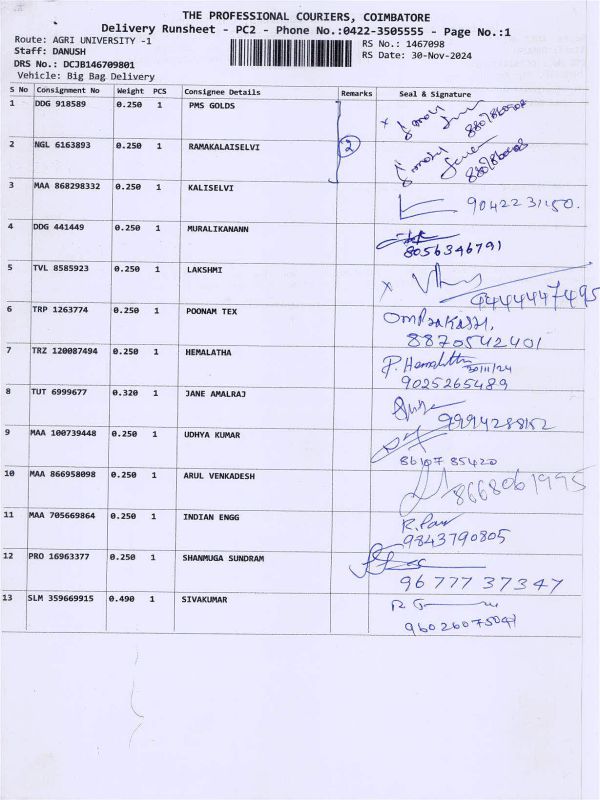 THE PROFESSIONAL COURIERS, COIMBATORE
Delivery Runsheet - PC2 - Phone No.:0422-3505555 - Page No.:1
Route: AGRI UNIVERSITY -1
RS No.: 1467098
Staff: DANUSH
RS Date: 30-Nov-2024
DRS No.: DCJB146709801
Vehicle: Big Bag Delivery
S No Consignment No Weight PCS Consignee Details Remarks Seal & Signature
1 DDG 918589 0.250 1 PMS GOLDS
2 NGL 6163893 0.250 1 RAMAKALAISELVI 2
3 MAA 868298332 0.250 1 KALISELVI 9042231150.
4 DDG 441449 0.250 1 MURALIKANANN
8056346791
5 TVL 8585923 0.250 1 LAKSHMI
9444447495
6 TRP 1263774 0.250 1 POONAM TEX OmPrakash,
8870542401
7 TRZ 120087494 0.250 1 HEMALATHA P. Hemalatha 30/11/24
9025265489
8 TUT 6999677 0.320 1 JANE AMALRAJ
9994288152
9 MAA 100739448 0.250 1 UDHYA KUMAR
8610785420
10 MAA 866958098 0.250 1 ARUL VENKADESH
8668061995
11 MAA 705669864 0.250 1 INDIAN ENGG
9843790805
12 PRO 16963377 0.250 1 SHANMUGA SUNDRAM
9677737347
13 SLM 359669915 0.490 1 SIVAKUMAR
9602607504